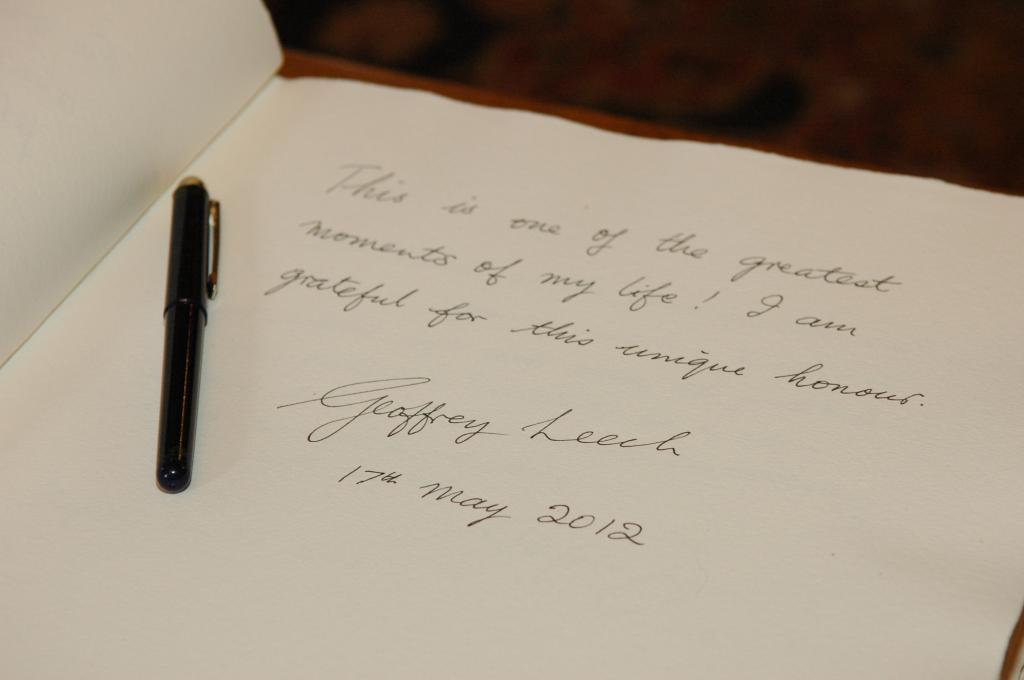 This is one of the greatest
moments of my life! I am
grateful for this unique honour.
Geoffrey Leech
17th May 2012